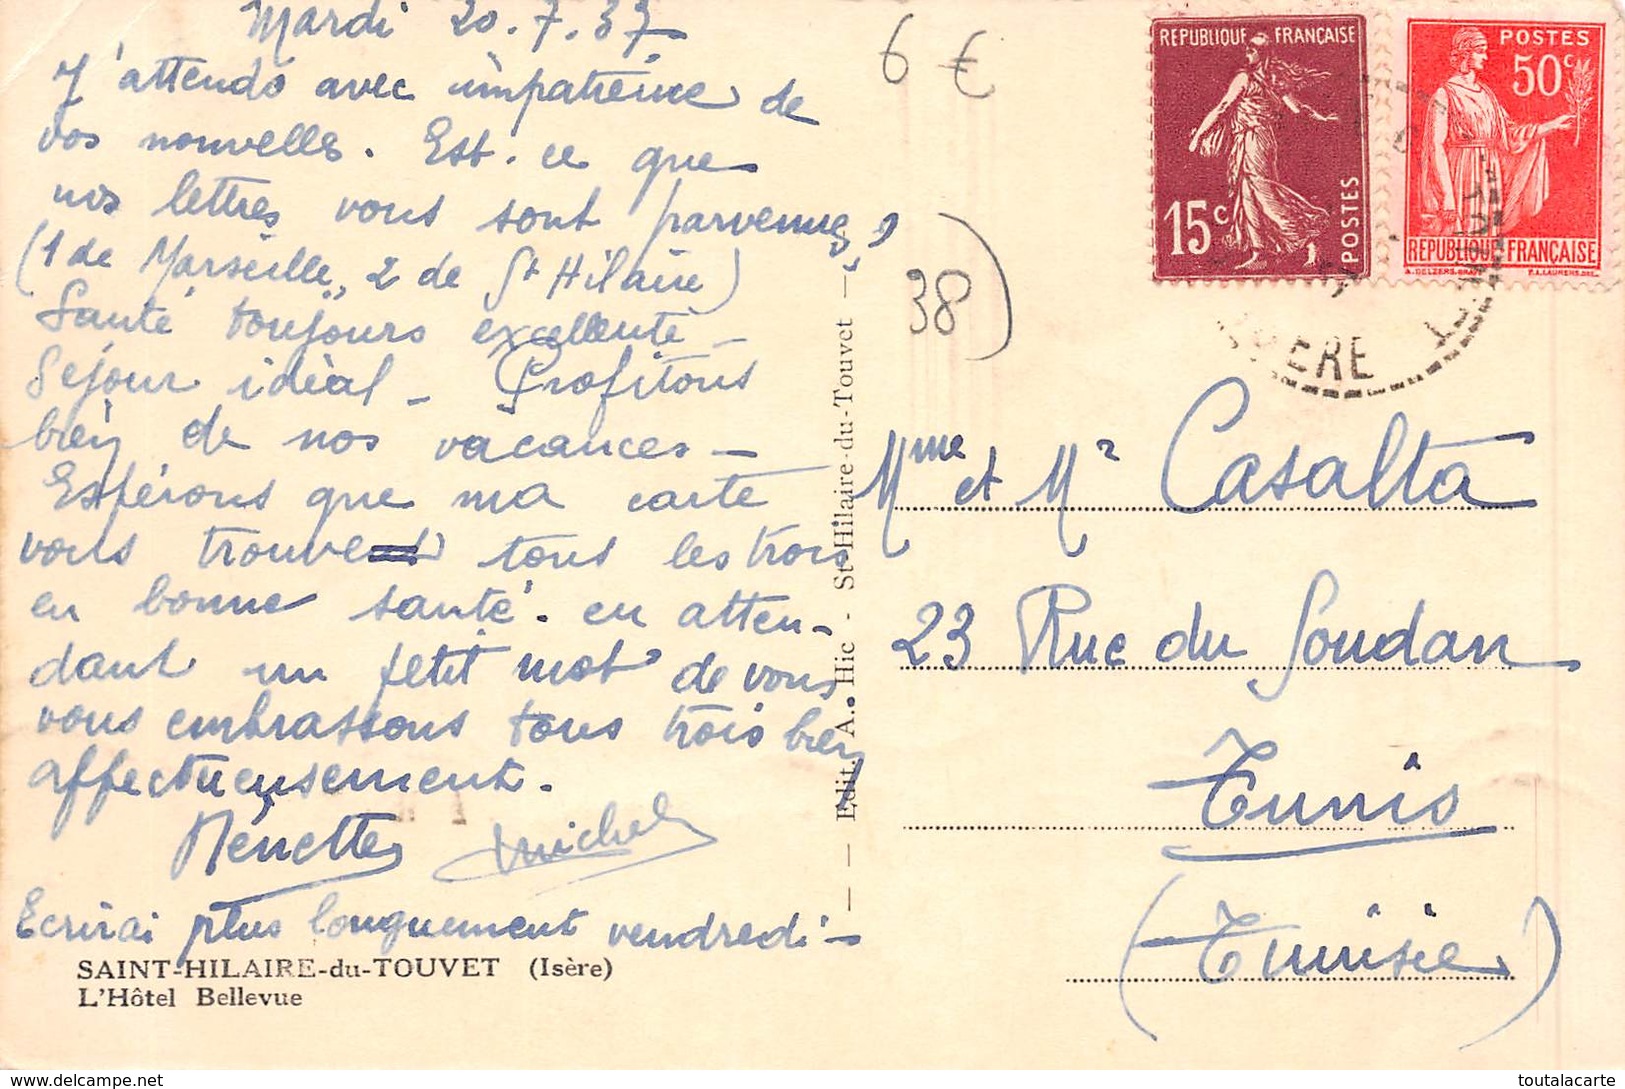 Mardi 20.7.37
J'attends avec impatience de
vos nouvelles. Est-ce que
nos lettres vous sont parvenues ?
(1 de Marseille, 2 de St Hilaire)
Santé toujours excellente -
Séjour idéal - Profitons
bien de nos vacances -
Espérons que ma carte
vous trouve tous les trois
en bonne santé. en atten-
dant un petit mot de vous
vous embrassons tous trois bien
affectueusement.
Nénette Michel
Ecrirai plus longuement vendredi -
SAINT-HILAIRE-du-TOUVET (Isère)
L'Hôtel Bellevue
Edit. A. Hic - St-Hilaire-du-Touvet
6 €
38)
REPUBLIQUE FRANÇAISE
15c
POSTES
POSTES
50c
REPUBLIQUE FRANÇAISE
ISERE
Mme et Mr Casalta
23 Rue du Soudan
Tunis
(Tunisie)
toutalacarte